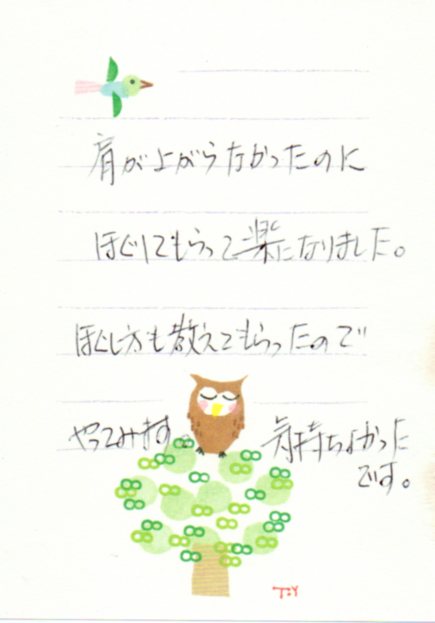 肩が上がらなかったのに
ほぐしてもらって楽になりました。
ほぐし方も教えてもらったので
やってみます 気持ちよかった
です。
T.Y